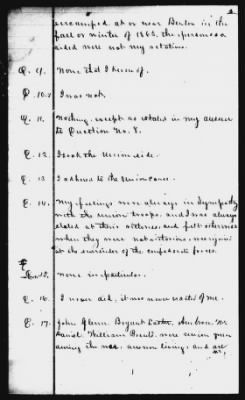 encamped at or near Berlin in the
fall or winter of 1863. the persons so
aided were not my relatives.
Q. 9. None that I know of.
Q. 10. I was not.
Q. 11. Nothing, except as stated in my answer
to Question No. 8.
Q. 12. I took the Union side.
Q. 13. I adhered to the Union cause.
Q. 14. My feelings were always in sympathy
with the Union troops, and I was always
elated at their victories, and felt otherwise
when they were not victorious,
at the surrender of the confederate forces.
15. None in particular.
Q. 16. I never did, it was never required of me.
Q. 17. John Glenn, Bryant
Daniel, William were union men
during the war, are now living, and are